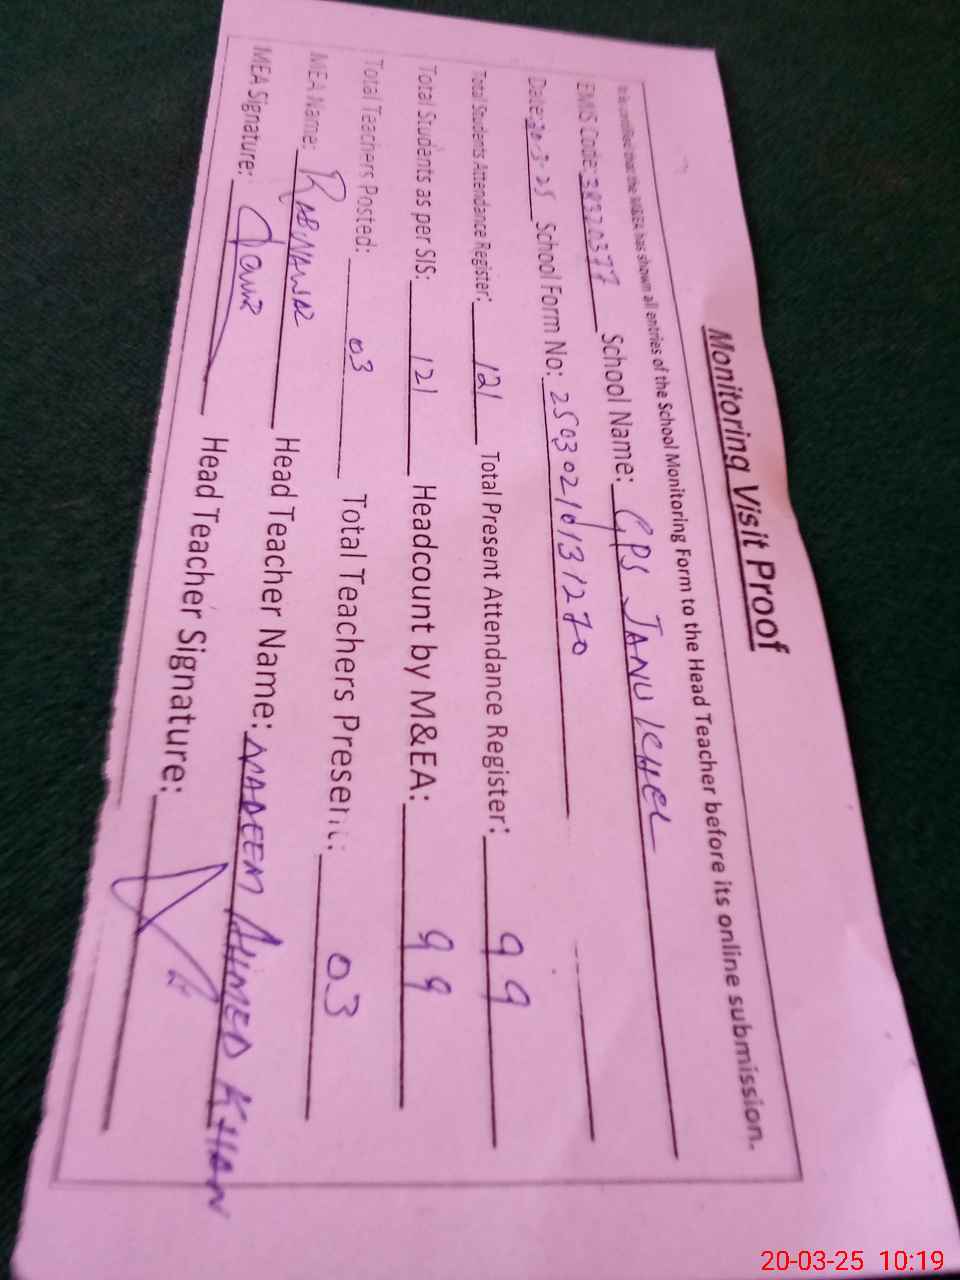 Monitoring Visit Proof
It is certified that the M&EA has shown all entries of the School Monitoring Form to the Head Teacher before its online submission.
EMIS Code: 38320377 School Name: GPS JANU KHEL
Date: 20-3-25 School Form No: 25030210131270
Total Students Attendance Register: 121 Total Present Attendance Register: 99
Total Students as per SIS: 121 Headcount by M&EA: 99
Total Teachers Posted: 03 Total Teachers Present: 03
MEA Name: RABNAWAZ Head Teacher Name: NADEEM AHMED KHAN
MEA Signature: Head Teacher Signature:
20-03-25 10:19